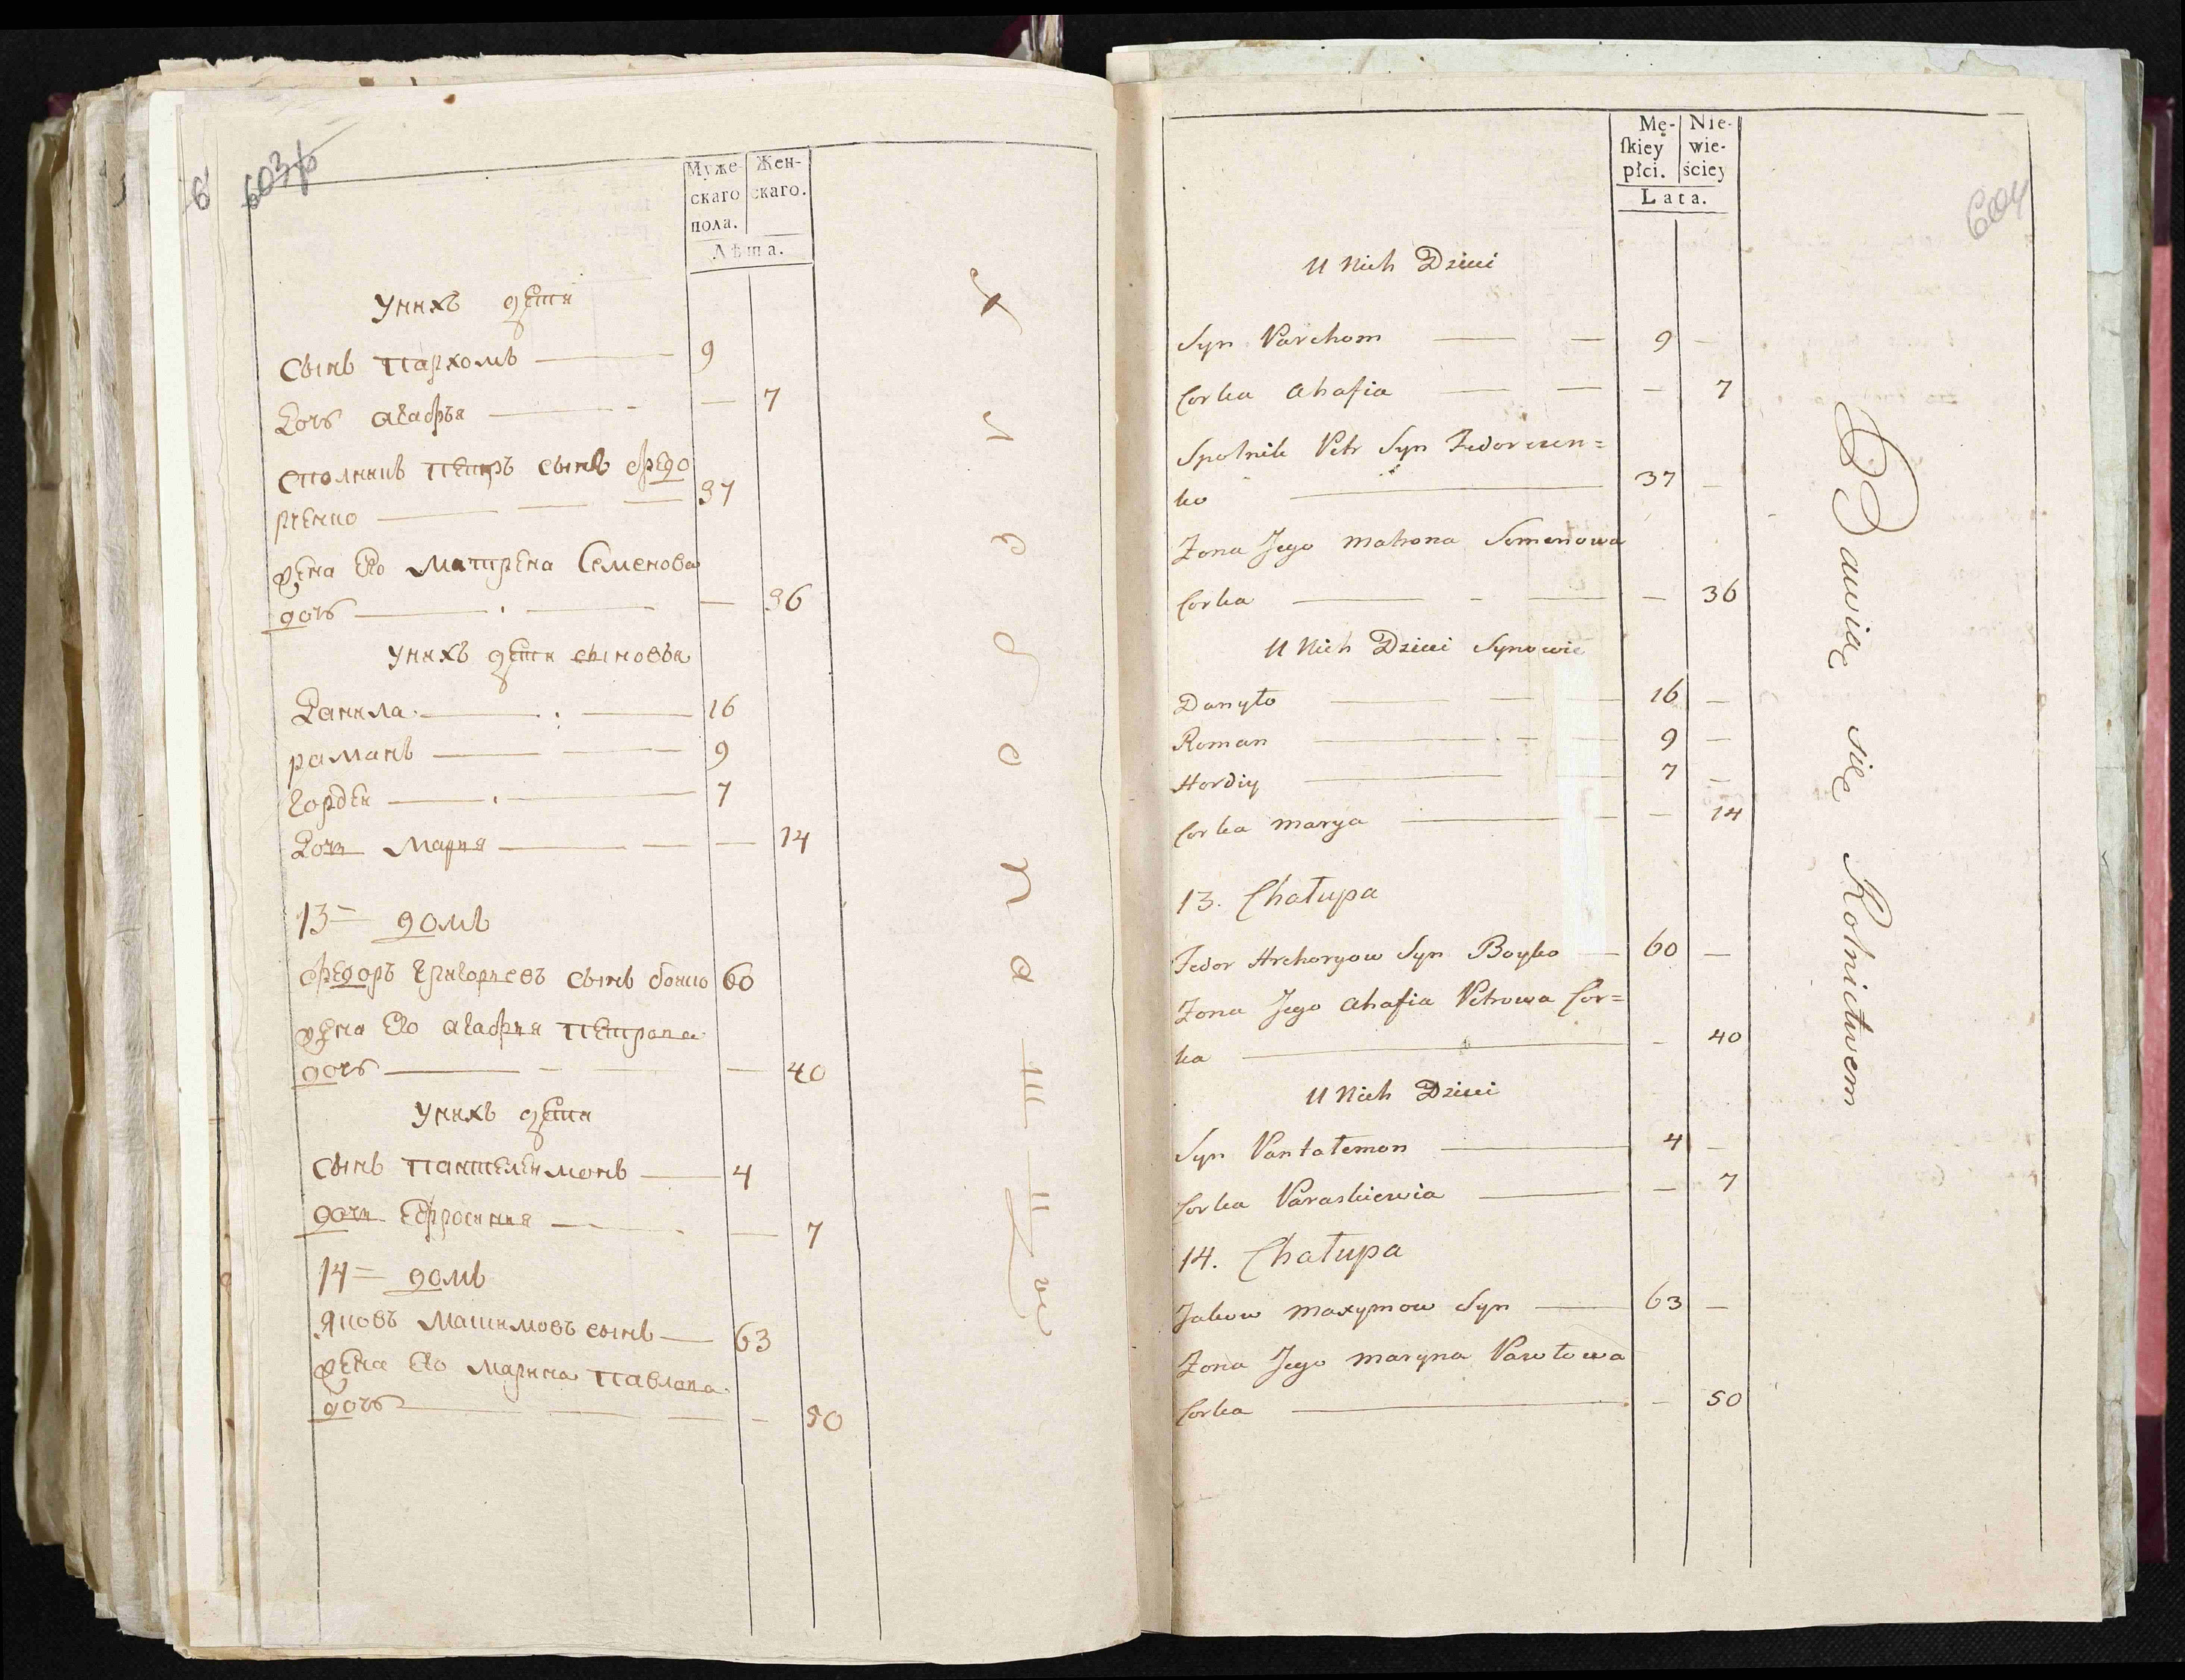 6
603
Муже- Жен-
скаго скаго.
пола.
Лѣта.
Унихъ дети
Сынъ пархомъ — 9
Дочь агафъя — — 7
сполникъ петръ сынъ федо
рченко — 37
жена Его матрена Семенова
дочь — — 36
Унихъ дети сыновья
Данила — 16
раманъ — 9
Гордеи — 7
Дочи мария — — 14
13 = домъ
федоръ григориевъ сынъ боико 60
жена Его агафия петрова
дочь — — 40
Унихъ дети
Сынъ пантелеимонъ — 4
дочи Ефросиния — — 7
14 = домъ
Яковъ Машимовъ сынъ — 63
жена Его марина павлова
дочь — — 50
Хлебопа
604
Mę- Nie-
ſkiey wie-
płci. ściey
Lata.
U Nich Dzieci
Syn Parchom — 9 —
Corka Ahafia — — 7
Spolnik Petr Syn Fedorczen=
ko — 37 —
Żona Jego Matrona Semenowa
Corka — — 36
U Nich Dzieci Synowie
Danyło — 16 —
Roman — 9 —
Hordiy — 7 —
Corka Marya — — 14
13. Chałupa
Fedor Hrehoryow Syn Boyko — 60 —
Żona Jego Ahafia Petrowa Cor=
ka — — 40
U Nich Dzieci
Syn Pantałemon — 4 —
Corka Paraskiewia — — 7
14. Chałupa
Jakow Maxymow Syn — 63 —
Żona Jego Maryna Pawłowa
Corka — — 50
Bawią się Rolnictwem